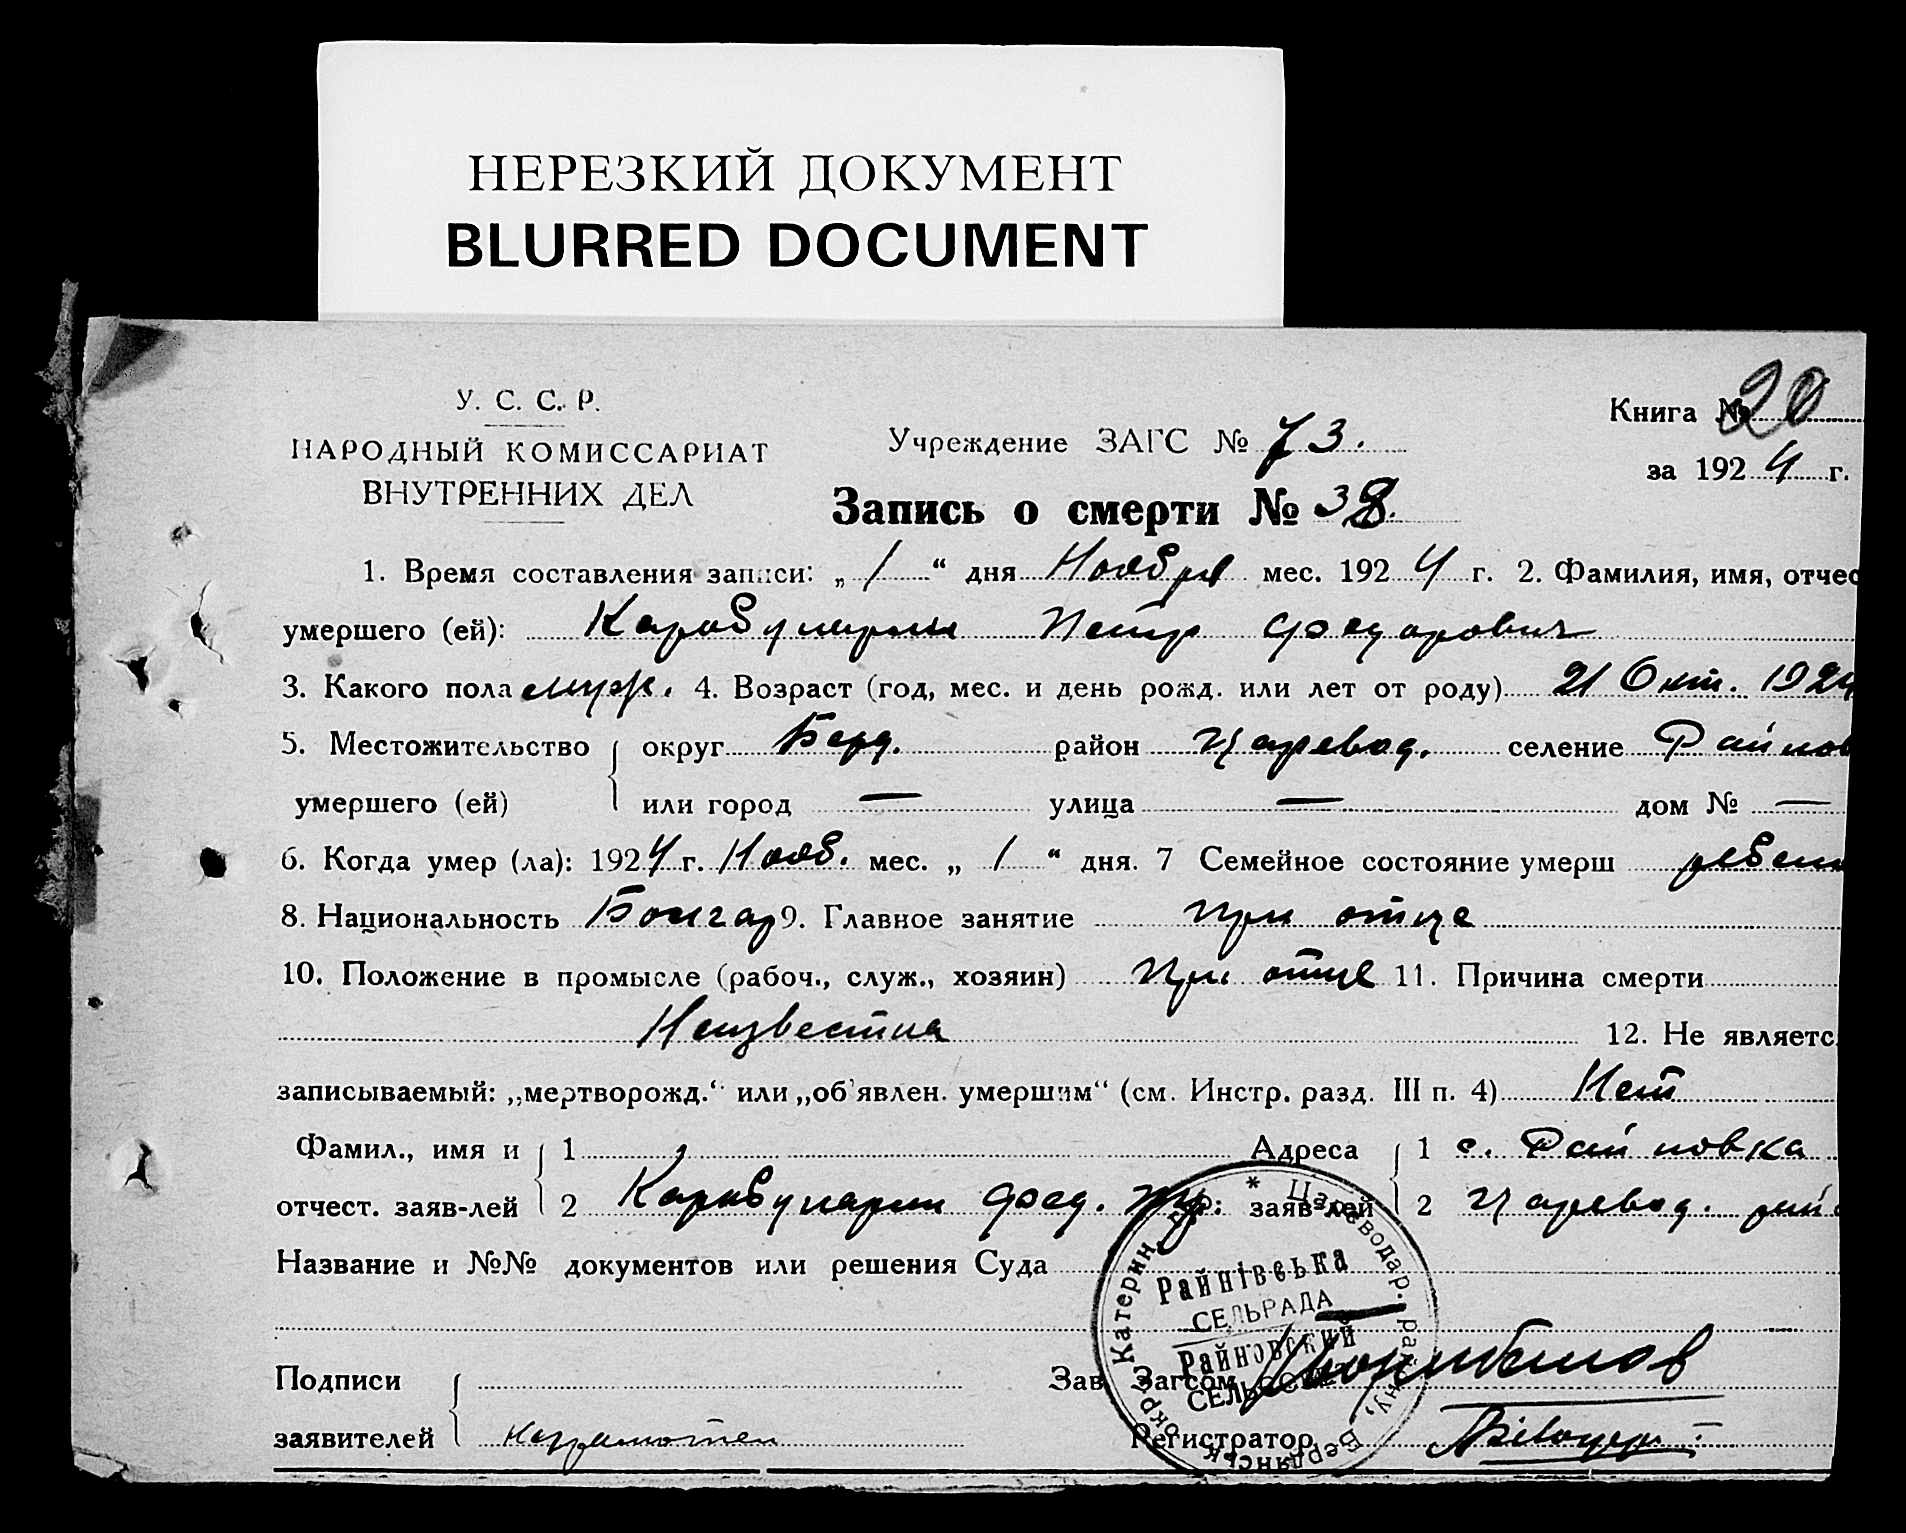 НЕРЕЗКИЙ ДОКУМЕНТ
BLURRED DOCUMENT
У. С. С. Р.
НАРОДНЫЙ КОМИССАРИАТ
ВНУТРЕННИХ ДЕЛ
Учреждение ЗАГС № 73.
Книга № 20
за 1924 г.
Запись о смерти № 38.
1. Время составления записи: „ 1 “ дня Ноября мес. 1924 г. 2. Фамилия, имя, отчес
умершего (ей): Петр Федорович
3. Какого пола муж. 4. Возраст (год, мес. и день рожд. или лет от роду) 21 Окт. 1924
5. Местожительство округ Берд. район Царевод. селение Райнов
умершего (ей) или город — улица — дом № —
6. Когда умер (ла): 1924 г. Нояб. мес. „ 1 “ дня. 7 Семейное состояние умерш ребен
8. Национальность Болгар 9. Главное занятие при отце
10. Положение в промысле (рабоч., служ., хозяин) при отце 11. Причина смерти
Неизвестна
12. Не являетс
записываемый: „мертворожд.“ или „об'явлен. умершим“ (см. Инстр. разд. III п. 4) Нет
Фамил., имя и 1 Адреса 1 с. Райновка
отчест. заяв-лей 2 Фед. заяв-лей 2 Царевод. рай
Название и №№ документов или решения Суда
Подписи Зав. Загсом
заявителей неграмотен Регистратор
* Цареводар. району, Бердянськ. округ Катерин.
Райнівська
СЕЛЬРАДА
Райновский
СЕЛЬСОВЕТ